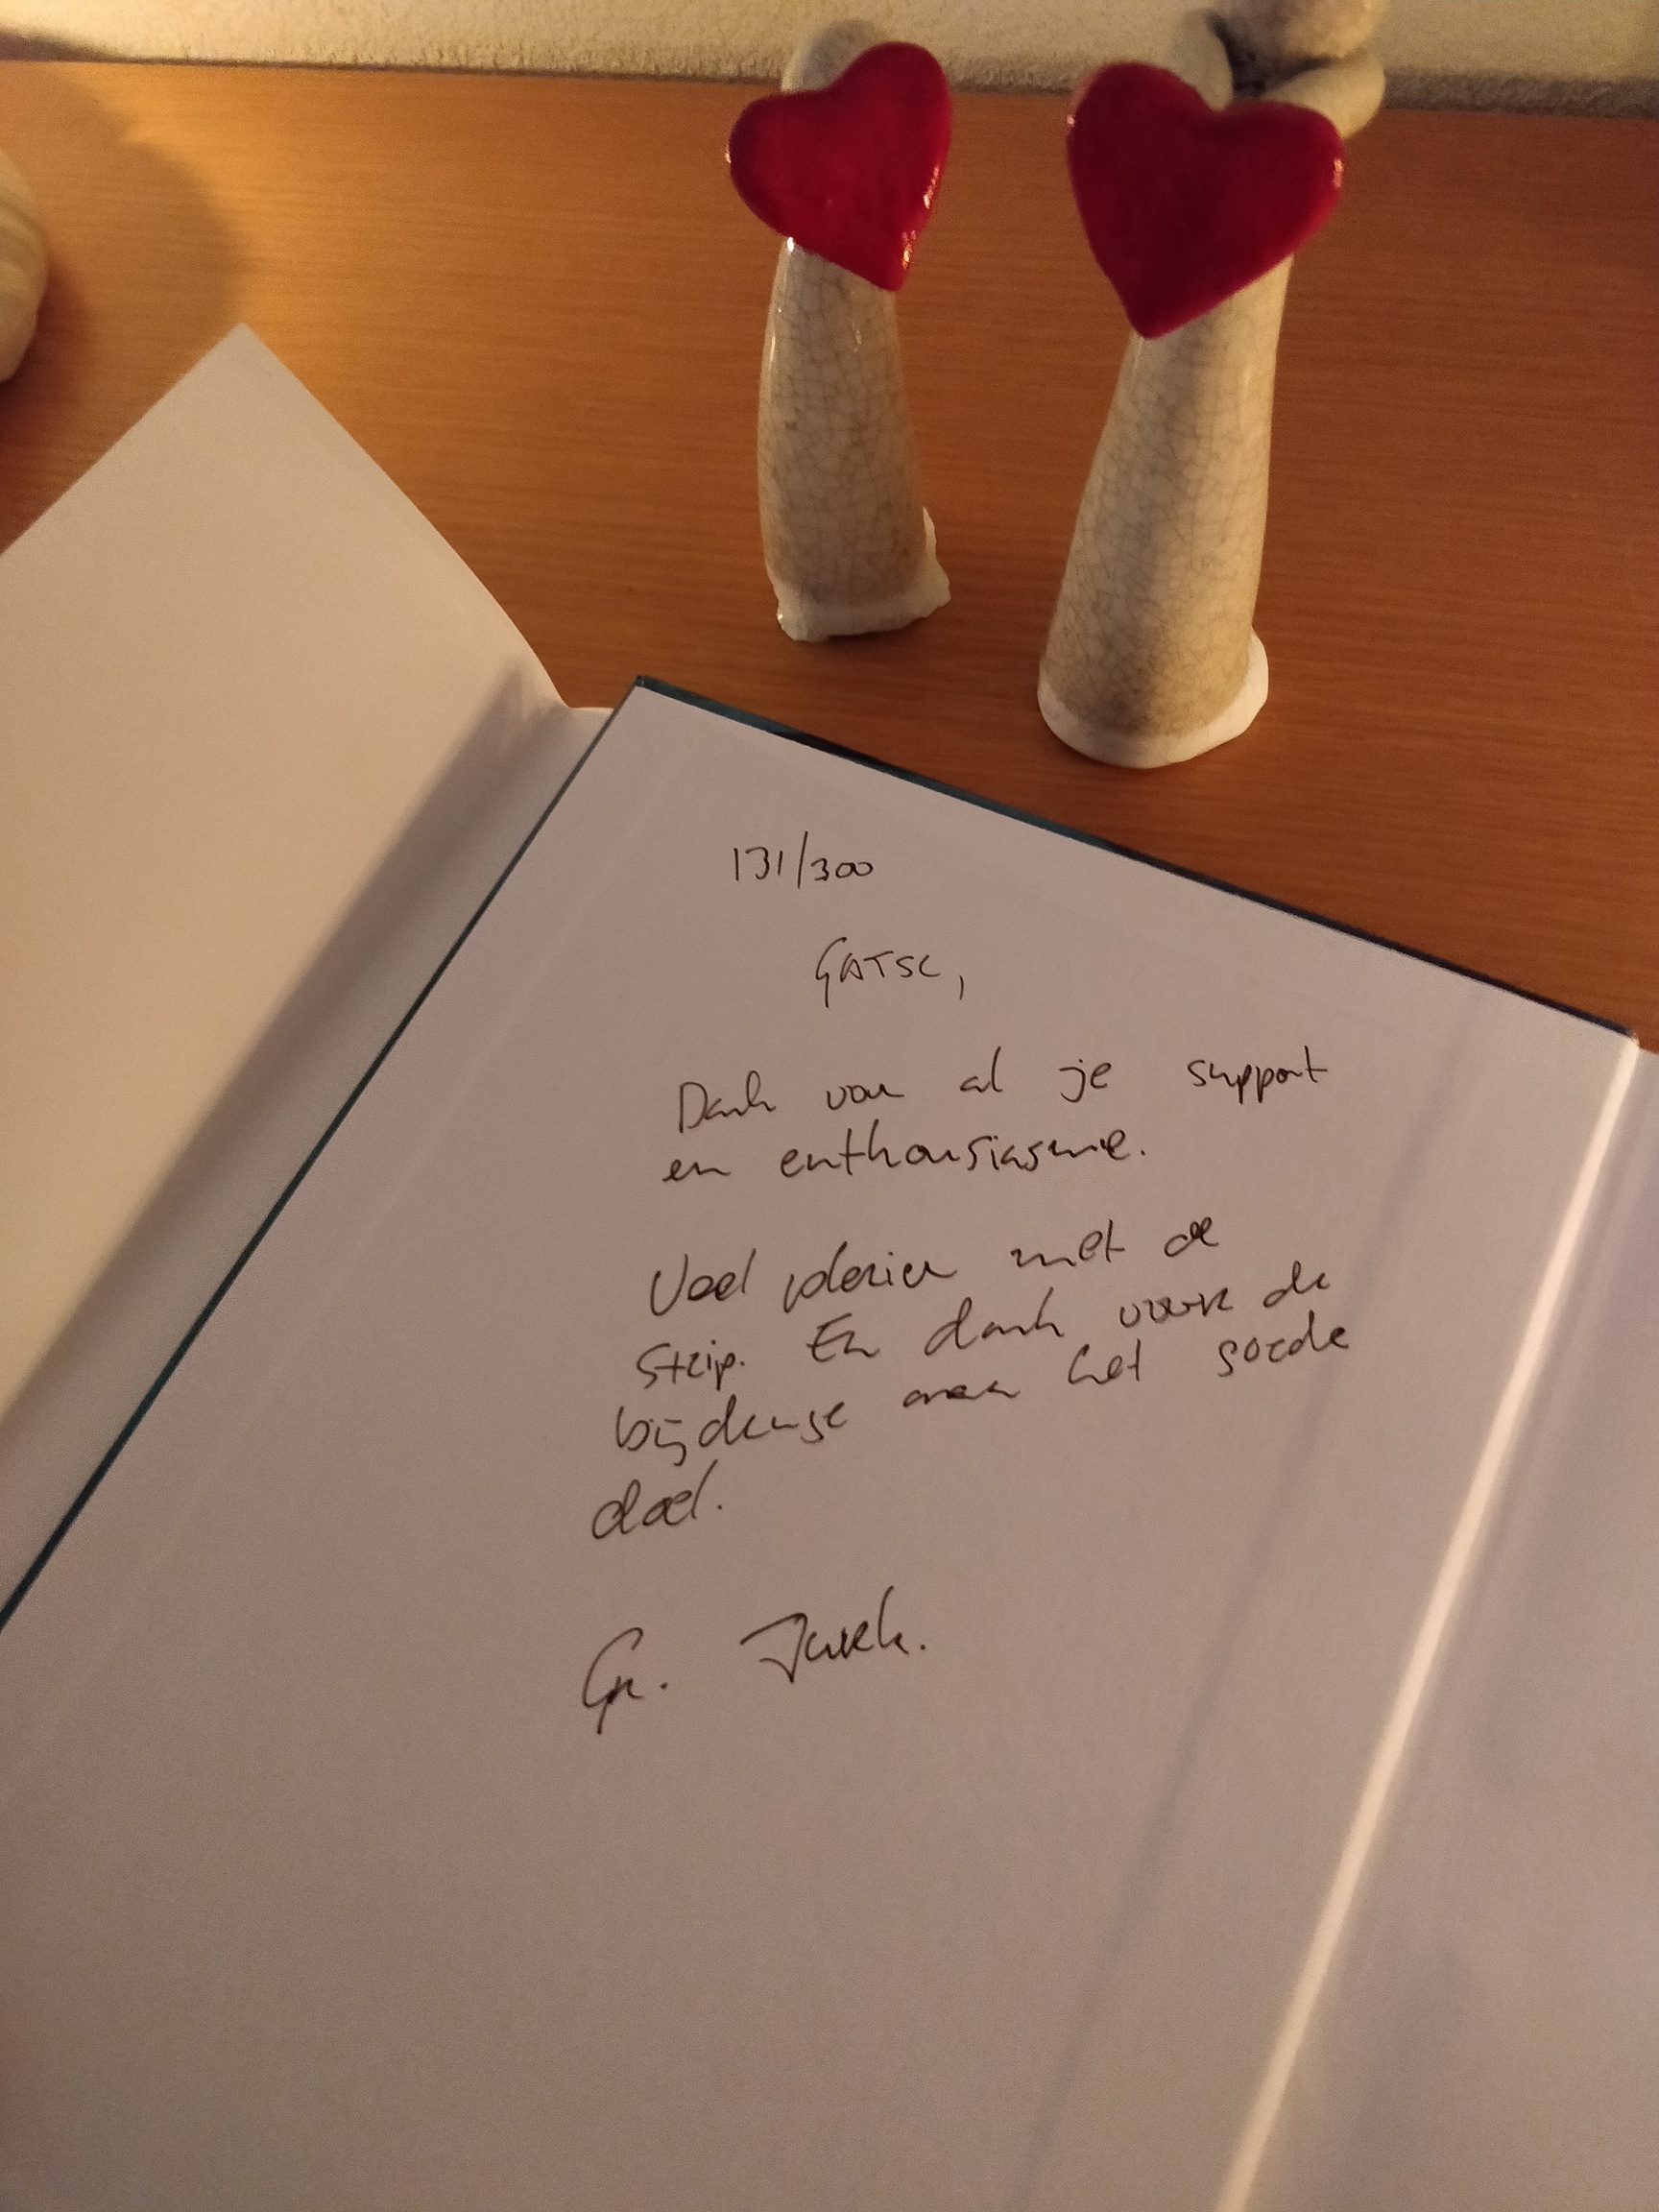 131/300
GATSE,
Dank voor al je support
en enthousiasme.
Veel plezier met de
strip. En dank voor de
bijdrage aan het goede
doel.
Gr. Jurek.